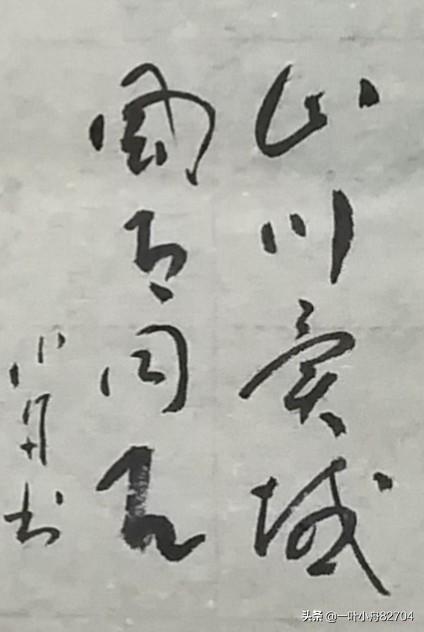 山川異域
風月同天
小舟书
头条 @一叶小舟82704